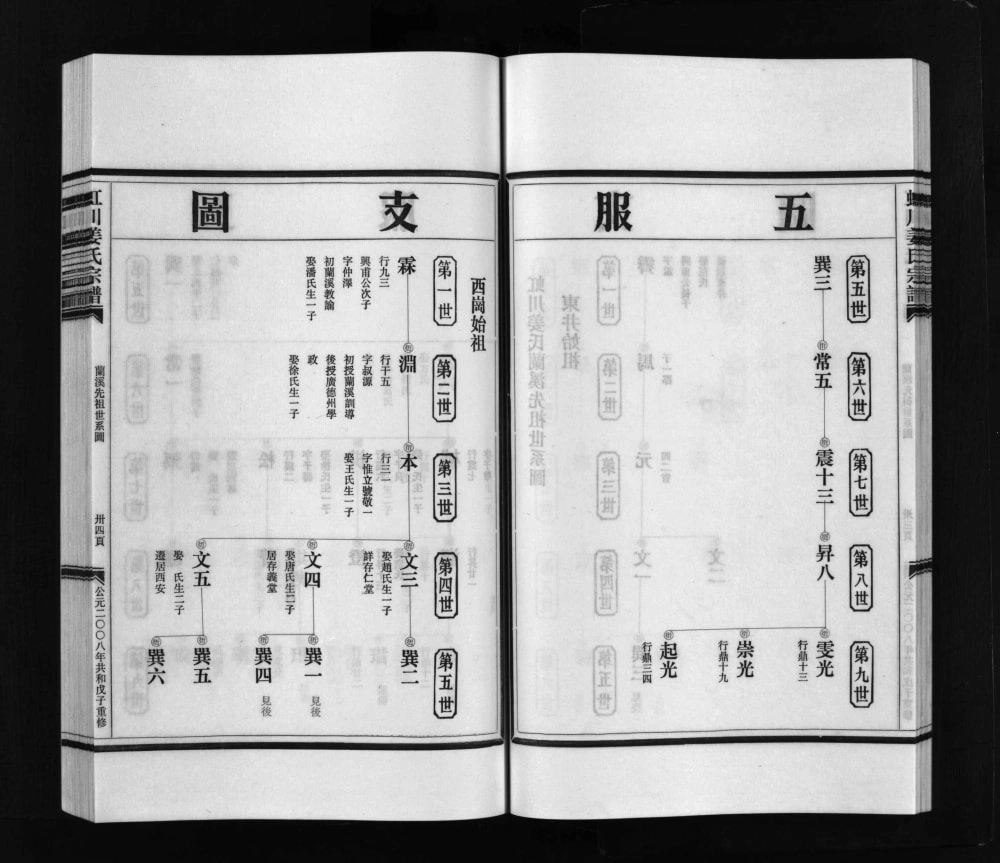 五服
第五世
巽三
第六世
常五
第七世
震十三
第八世
昇八
第九世
雯光
行鼎十三
崇光
行鼎十九
起光
行鼎三四
支圖
西崗始祖
第一世
霖
行九三
興甫公次子
字仲澤
初蘭溪教諭
娶潘氏生一子
第二世
淵
行千五
字叔源
初授蘭溪訓導
後授廣德州學
政
娶徐氏生一子
第三世
本
行三一
字惟立號敬一
娶王氏生一子
第四世
文三
娶趙氏生一子
詳存仁堂
文四
娶唐氏生二子
居存義堂
文五
娶 氏生二子
遷居西安
第五世
巽二
巽一
見後
巽四
見後
巽五
巽六
虹川姜氏宗譜
蘭溪先祖世系圖
卅四頁
公元二〇〇八年共和戊子重修